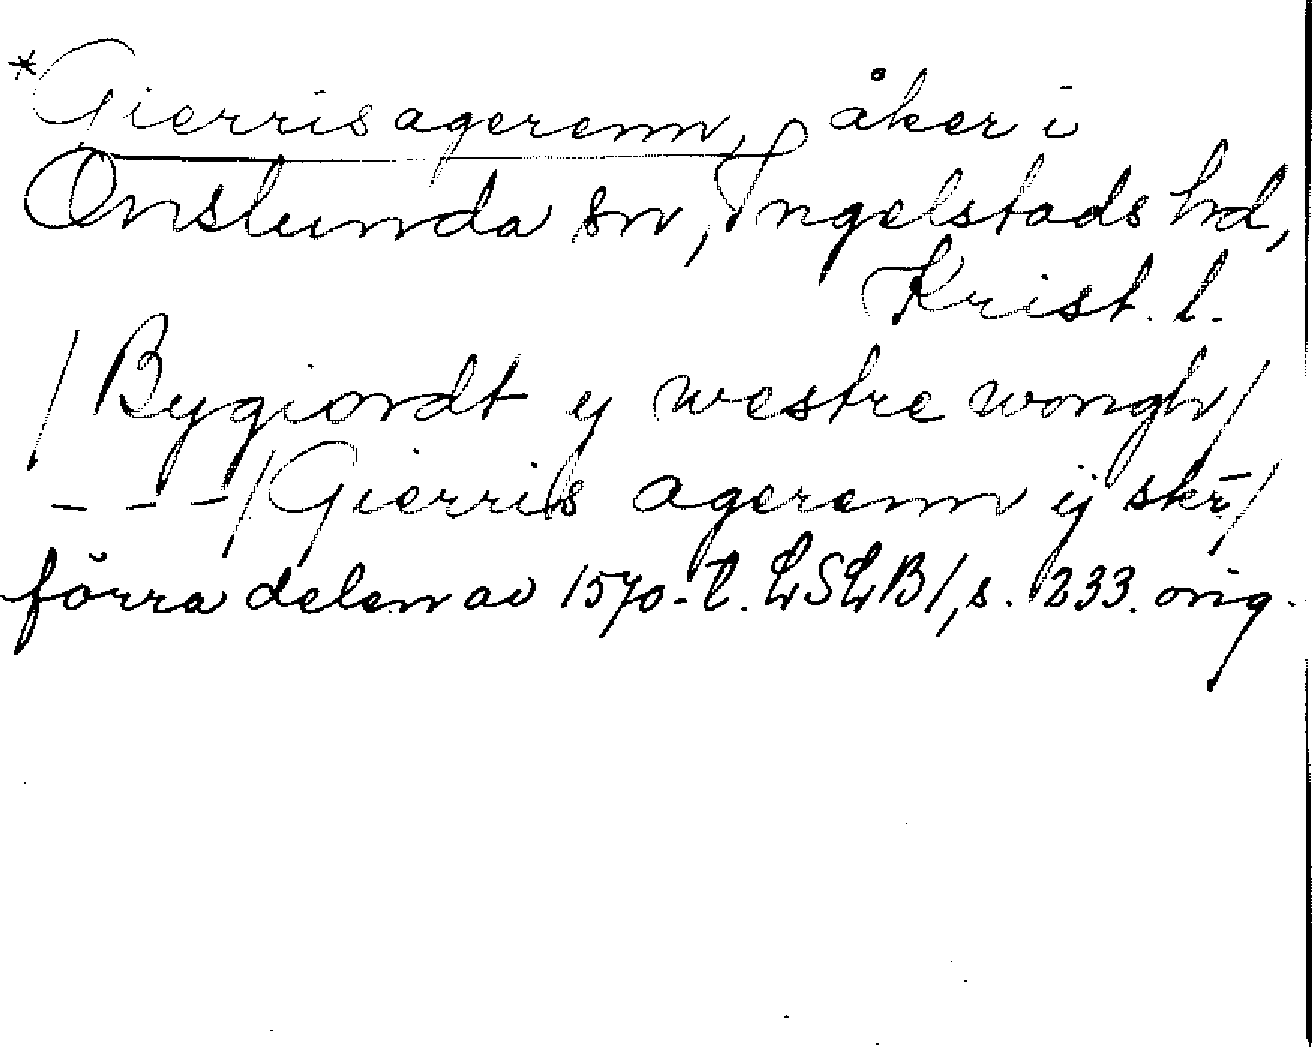 *Gierrisagerenn, åker i
Onslunda sn, Ingelstads hd,
Krist. l.
/Bygiordt y westre wongh/
- - -/Gierris agerenn ij skr̄/
förra delen av 1570-t. LSLB1, s. 233. orig.